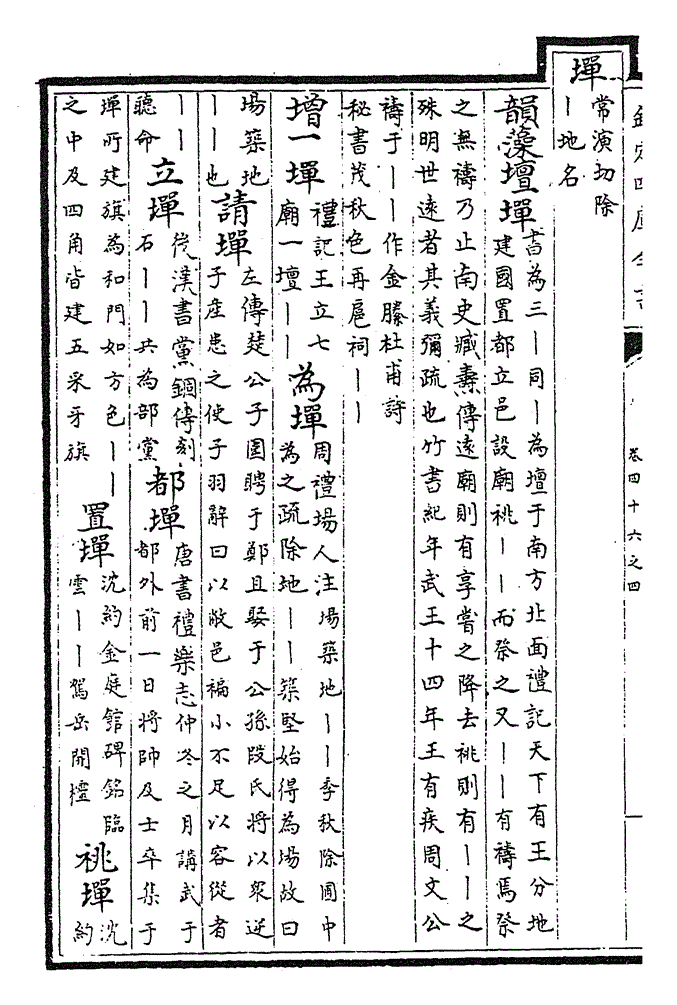 欽定四庫全書
卷四十六之四
墠
常演切除
｜地名
韻藻壇墠
書為三｜同｜為壇于南方北面禮記天下有王分地
建國置都立邑設廟祧｜｜而祭之又｜｜有禱焉祭
之無禱乃止南史臧燾傳遠廟則有享嘗之降去祧則有｜｜之
殊明世遠者其義彌疏也竹書紀年武王十四年王有疾周文公
禱于｜｜作金縢杜甫詩
秘書茂秋色再扈祠｜｜
增一墠
禮記王立七
廟一壇｜｜
為墠
周禮場人注場築地｜｜季秋除圃中
為之疏除地｜｜築堅始得為場故曰
場築地
｜｜也
請墠
左傳楚公子圍聘于鄭且娶于公孫段氏將以衆逆
子産患之使子羽辭曰以敝邑褊小不足以容從者
｜｜
聽命
立墠
後漢書黨錮傳刻
石｜｜共為部黨
都墠
唐書禮樂志仲冬之月講武于
都外前一日將帥及士卒集于
墠所建旗為和門如方色｜｜
之中及四角皆建五采牙旗
置墠
沈約金庭館碑銘臨
雲｜｜駕岳開櫺
祧墠
沈
約